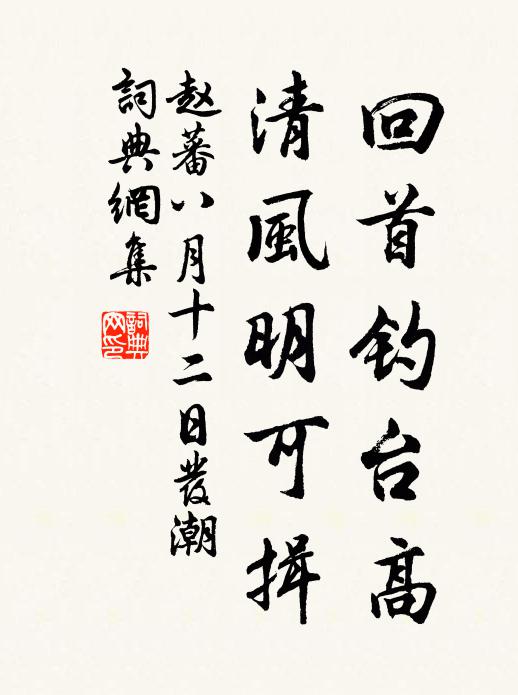 回首钓台高
清風明可揖
赵蕃八月十二日發潮
詞典網集
詞典
网印